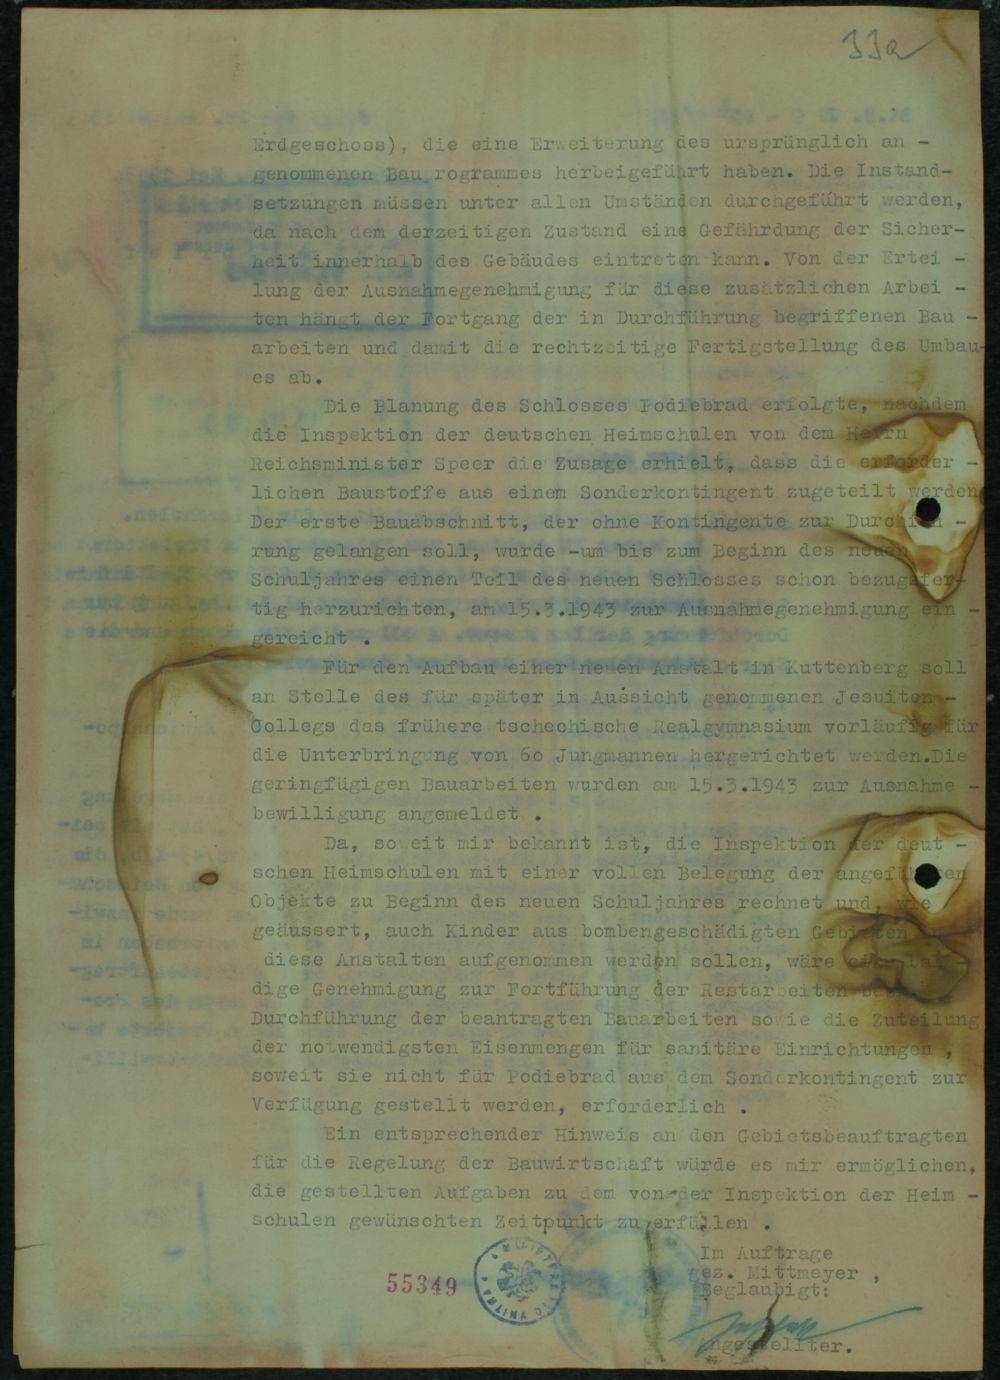 33a
Erdgeschoss), die eine Erweiterung des ursprünglich an -
genommenen Bau rogrammes herbeigeführt haben. Die Instand-
setzungen müssen unter allen Umständen durchgeführt werden,
da nach dem derzeitigen Zustand eine Gefährdung der Sicher-
heit innerhalb des Gebäudes eintreten kann. Von der Ertei -
lung der Ausnahmegenehmigung für diese zusätzlichen Arbei -
ten hängt der Fortgang der in Durchführung begriffenen Bau -
arbeiten und damit die rechtzeitige Fertigstellung des Umbau-
es ab.
Die Planung des Schlosses Podiebrad erfolgte, nachdem
die Inspektion der deutschen Heimschulen von dem Herrn
Reichsminister Speer die Zusage erhielt, dass die erforder -
lichen Baustoffe aus einem Sonderkontingent zugeteilt werden
Der erste Bauabschnitt, der ohne Kontingente zur Durchfüh -
rung gelangen soll, wurde -um bis zum Beginn des neuen
Schuljahres einen Teil des neuen Schlosses schon bezugsfer-
tig herzurichten, am 15.3.1943 zur Ausnahmegenehmigung ein -
gereicht .
Für den Aufbau einer neuen Anstalt in Kuttenberg soll
an Stelle des für später in Aussicht genommenen Jesuiten -
Collegs das frühere tschechische Realgymnasium vorläufig für
die Unterbringung von 6o Jungmannen hergerichtet werden.Die
geringfügigen Bauarbeiten wurden am 15.3.1943 zur Ausnahme -
bewilligung angemeldet .
Da, soweit mir bekannt ist, die Inspektion der deut -
schen Heimschulen mit einer vollen Belegung der angeführten
Objekte zu Beginn des neuen Schuljahres rechnet und, wie
geäussert, auch Kinder aus bombengeschädigten Gebieten in
diese Anstalten aufgenommen werden sollen, wäre eine bal -
dige Genehmigung zur Fortführung der Restarbeiten bezw.
Durchführung der beantragten Bauarbeiten sowie die Zuteilung
der notwendigsten Eisenmengen für sanitäre Einrichtungen ,
soweit sie nicht für Podiebrad aus dem Sonderkontingent zur
Verfügung gestellt werden, erforderlich .
Ein entsprechender Hinweis an den Gebietsbeauftragten
für die Regelung der Bauwirtschaft würde es mir ermöglichen,
die gestellten Aufgaben zu dem von der Inspektion der Heim -
schulen gewünschten Zeitpunkt zu erfüllen .
Im Auftrage
gez. Mittmeyer ,
Beglaubigt:
55349
Angestellter.